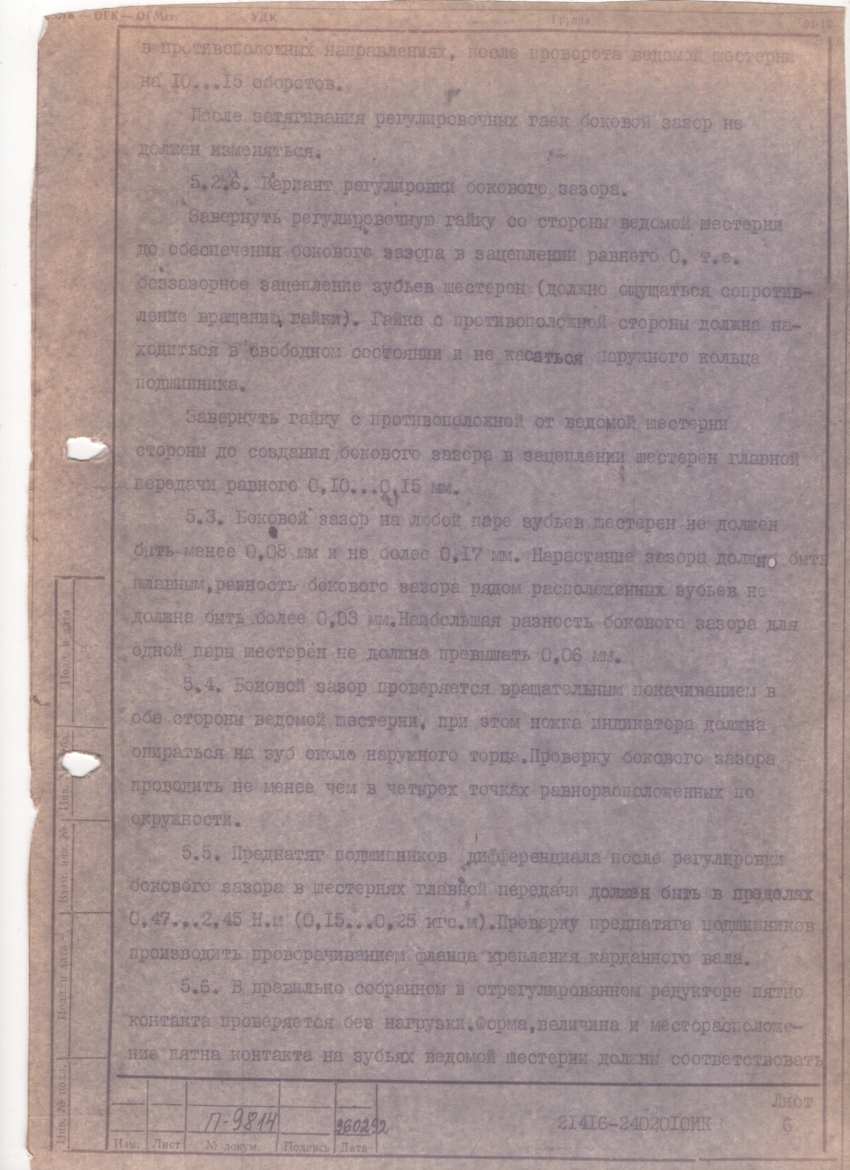 ОГК — ОГМет. УДК Группа
в противоположных направлениях, после проворота ведомой шестерни
на 10...15 оборотов.
После затягивания регулировочных гаек боковой зазор не
должен изменяться.
5.2.6. Вариант регулировки бокового зазора.
Завернуть регулировочную гайку со стороны ведомой шестерни
до обеспечения бокового зазора в зацеплении равного 0, т.е.
беззазорное зацепление зубьев шестерен (должно ощущаться сопротив-
ление вращению гайки). Гайка с противоположной стороны должна на-
ходиться в свободном состоянии и не касаться наружного кольца
подшипника.
Завернуть гайку с противоположной от ведомой шестерни
стороны до создания бокового зазора в зацеплении шестерен главной
передачи равного 0,10...0,15 мм.
5.3. Боковой зазор на любой паре зубьев шестерен не должен
быть менее 0,08 мм и не более 0,17 мм. Нарастание зазора должно быть
плавным,разность бокового зазора рядом расположенных зубьев не
должна быть более 0,03 мм.Наибольшая разность бокового зазора для
одной пары шестерён не должна превышать 0,06 мм.
5.4. Боковой зазор проверяется вращательным покачиванием в
обе стороны ведомой шестерни, при этом ножка индикатора должна
опираться на зуб около наружного торца.Проверку бокового зазора
проводить не менее чем в четырех точках равнорасположенных по
окружности.
5.5. Преднатяг подшипников дифференциала после регулировки
бокового зазора в шестернях главной передачи должен быть в пределах
0,47...2,45 Н.м (0,15...0,25 кгс.м).Проверку преднатяга подшипников
производить проворачиванием фланца крепления карданного вала.
5.6. В правильно собранном и отрегулированном редукторе пятно
контакта проверяется без нагрузки.Форма,величина и месторасположе-
ние пятна контакта на зубьях ведомой шестерни должны соответствовать
Подп. и дата
Взам. инв. №
Подп. и дата
Инв. № подл.
П-9814 960292
Изм. Лист № докум. Подпись Дата
21416-2402010ИК
Лист
6